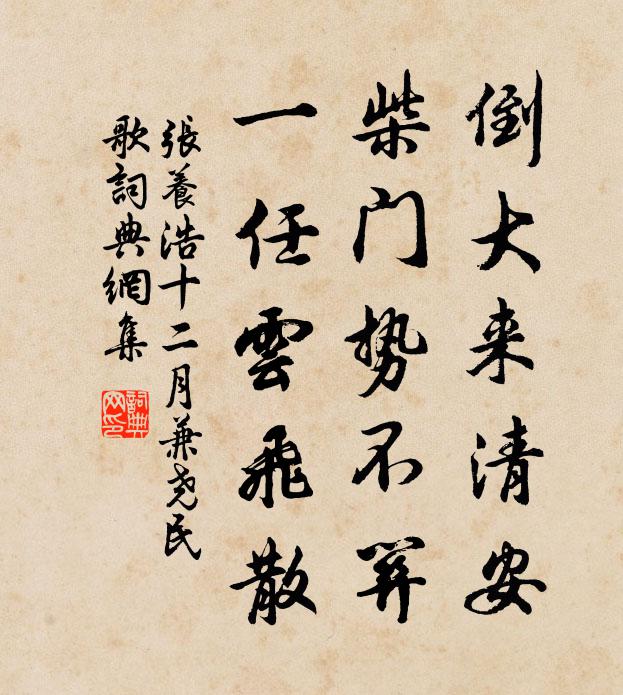 倒大来清安
柴门势不開
一任雲飛散
張養浩十二月兼尧民
歌詞典網集
詞典
网印